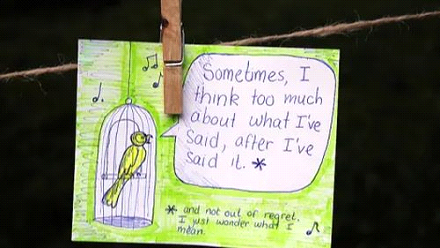 Sometimes, I
think too much
about what I've
said, after I've
said it. *
* and not out of regret.
I just wonder what I
mean.